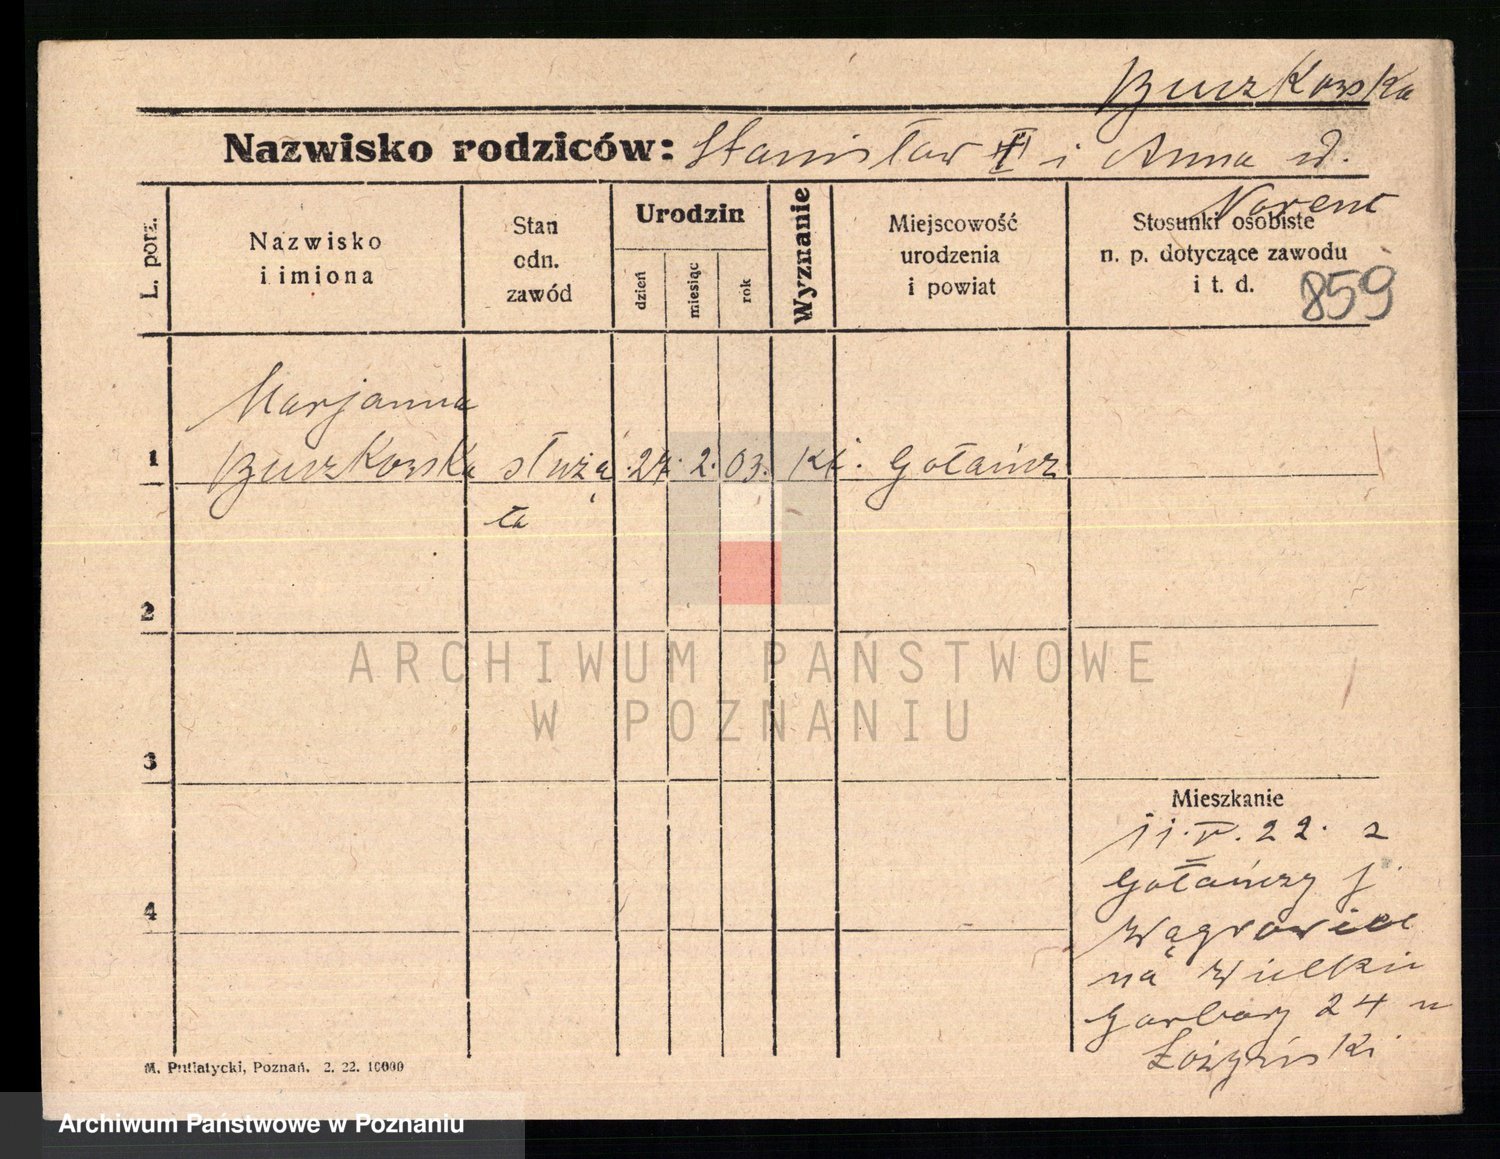 Buszkowska
Nazwisko rodziców: Stanisław i Anna
Norent
L. porz.
Nazwisko
i imiona
Stan
odn.
zawód
Urodzin
dzień
miesiąc
rok
Wyznanie
Miejscowość
urodzenia
i powiat
Stosunki osobiste
n. p. dotyczące zawodu
i t. d.
859
Marjanna
1 Buszkowska służą 2. 03. kt. Gołańcz
ca
2
ARCHIWUM PAŃSTWOWE
W POZNANIU
3
Mieszkanie
11.V.22. z
Gołańczy
4
Wągrowiec
na Wielkie
Garbary 24 u
M. Putiatycki, Poznań. 2. 22. 10000
Archiwum Państwowe w Poznaniu